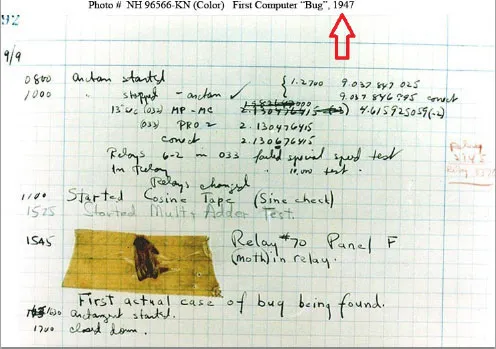 Photo # NH 96566-KN (Color) First Computer “Bug”, 1947
92
9/9
0800 antan started
1000 " stopped - antan ✓ { 1.2700 9.037 847 025
9.037 846 995 conect
13"uc (032) MP - MC 2.130476415 4.615925059(-2)
(033) PRO 2 2.130476415
conect 2.130676415
Relays 6-2 in 033 failed special speed test
In Relay " 10,000 test .
Relays changed
Relay
2145
Relay
1100 Started Cosine Tape (Sine check)
1525 Started Mult+ Adder Test.
1545 Relay #70 Panel F
(moth) in relay.
First actual case of bug being found.
1630 antangent started.
1700 closed down .